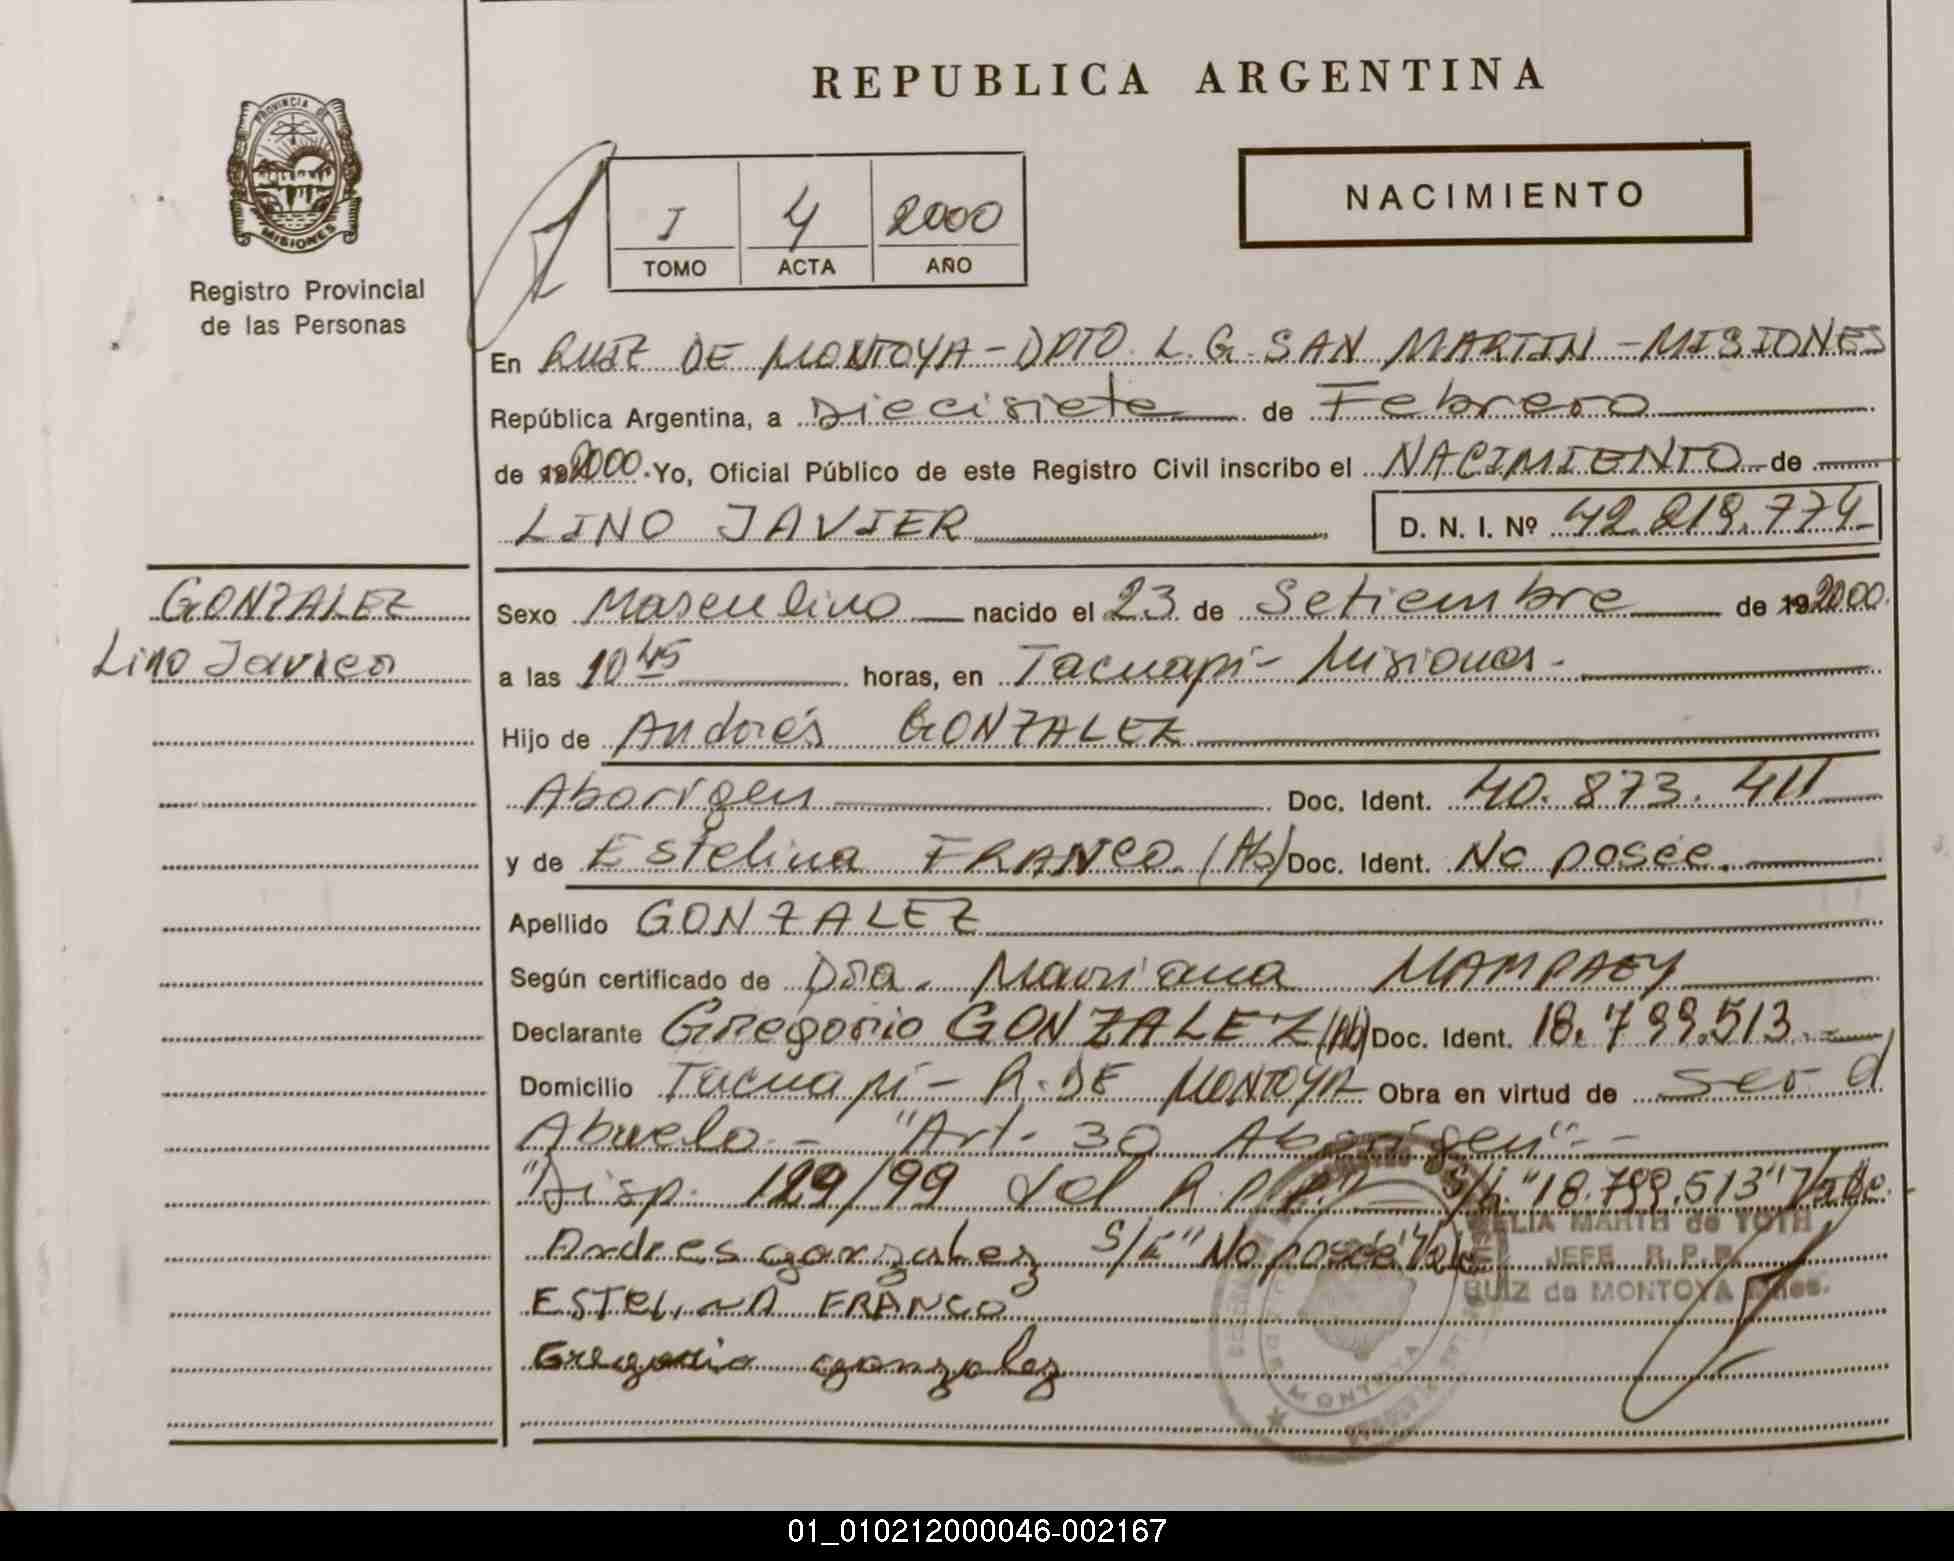 REPUBLICA ARGENTINA
PROVINCIA DE
MISIONES
Registro Provincial
de las Personas
I 4 2000
TOMO ACTA AÑO
NACIMIENTO
En RUIZ DE MONTOYA - DPTO. L.G. SAN MARTIN - MISIONES
República Argentina, a Diecisiete de Febrero
de 2000. Yo, Oficial Público de este Registro Civil inscribo el NACIMIENTO de
LINO JAVIER D. N. I. Nº 42.219.774
GONZALEZ
Lino Javier
Sexo Masculino nacido el 23 de Setiembre de 192000.
a las 10 45 horas, en Tacuapi - Misiones.
Hijo de Andrés GONZALEZ
Aborigen Doc. Ident. 40.873.411
y de Estelina FRANCO. (Ab) Doc. Ident. No posee.
Apellido GONZALEZ
Según certificado de Dra. Mariana MAMPAEY
Declarante Gregorio GONZALEZ (Ab) Doc. Ident. 18.799.513.
Domicilio Tacuapí - R. DE MONTOYA Obra en virtud de ser el
Abuelo - "Art. 30 Aborigen" -
"Disp. 129/99 del R.P.P." S/E. "18.799.513" Vale.
Andres gonzalez S/E "No posee" Vale
ESTELINA FRANCO
Gregorio gonzalez
MARTH de TOTH
JEFE R.P.P.
RUIZ de MONTOYA Mnes.
MONTOYA
01_010212000046-002167